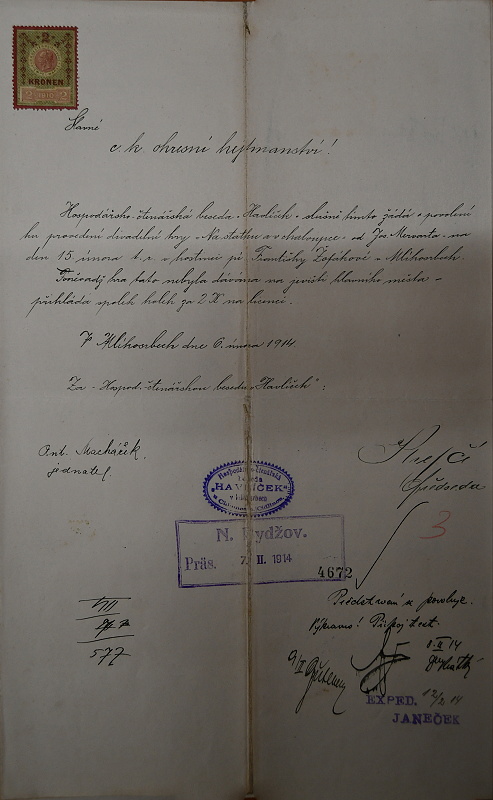 2
KRONEN
2 1910 2
Slavné
c. k. okresní hejtmanství!
Hospodářsko-čtenářská beseda „Havlíček“ slušně tímto žádá o povolení
ku provedení divadelní hry „Na statku a v chaloupce“ od Jos. Mervarta na
den 15. února t. r. v hostinci pí Františky Žofákové v Mlikosrbech.
hra tato nebyla dávána na jevišti hlavního města
přikládá spolek kolek za 2 K na licenci.
V Mlikosrbech dne 6. února 1914.
Za „Hospod. čtenářskou besedu „Havlíček“:
Ant. Macháček.
jednatel
předseda
Hospodářsko-čtenářská
beseda
„HAVLÍČEK“
3
N. Bydžov.
Präs. 7. II. 1914
4672
VII
577
Představení se povoluje.
8. II 14
9/II
EXPED. 12/2 14
JANEČEK